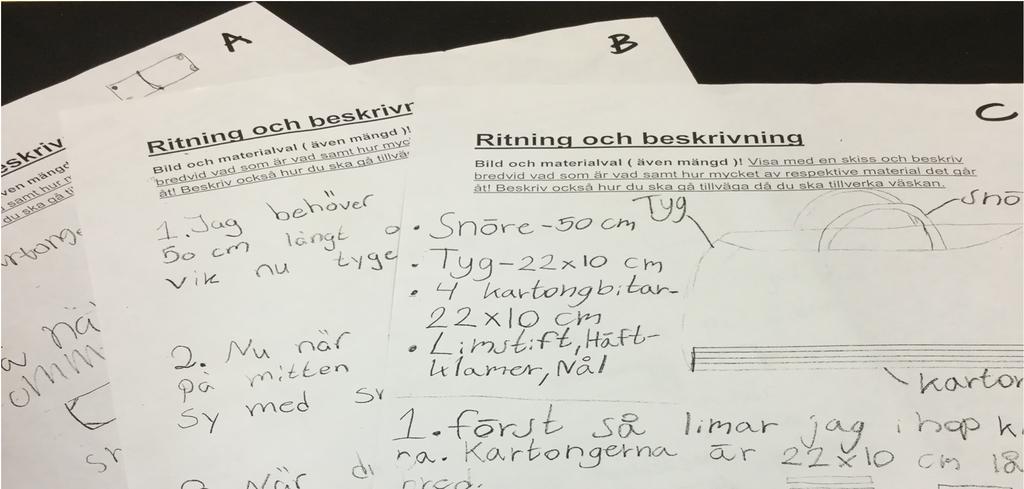 A
eskriv
ven mängd
samt hur m
du ska gå t
artong
nä
omm
B
Ritning och beskrivr
Bild och materialval ( även mängd )!
bredvid vad som är vad samt hur myc
åt! Beskriv också hur du ska gå tillvä
1. Jag behöver
50 cm långt
vik nu tyge
2. Nu när
på mitten
Sy med
När di
C
Ritning och beskrivning
Bild och materialval ( även mängd )! Visa med en skiss och beskriv
bredvid vad som är vad samt hur mycket av respektive material det går
åt! Beskriv också hur du ska gå tillväga då du ska tillverka väskan.
Tyg
Snö
• Snöre-50 cm
• Tyg-22x10 cm
• 4 kartongbitar-
22x10 cm
• Limstift, Häft-
klamer, Nål
kartor
1. först så limar jag ihop k
na. Kartongerna är 22x10 cm lå